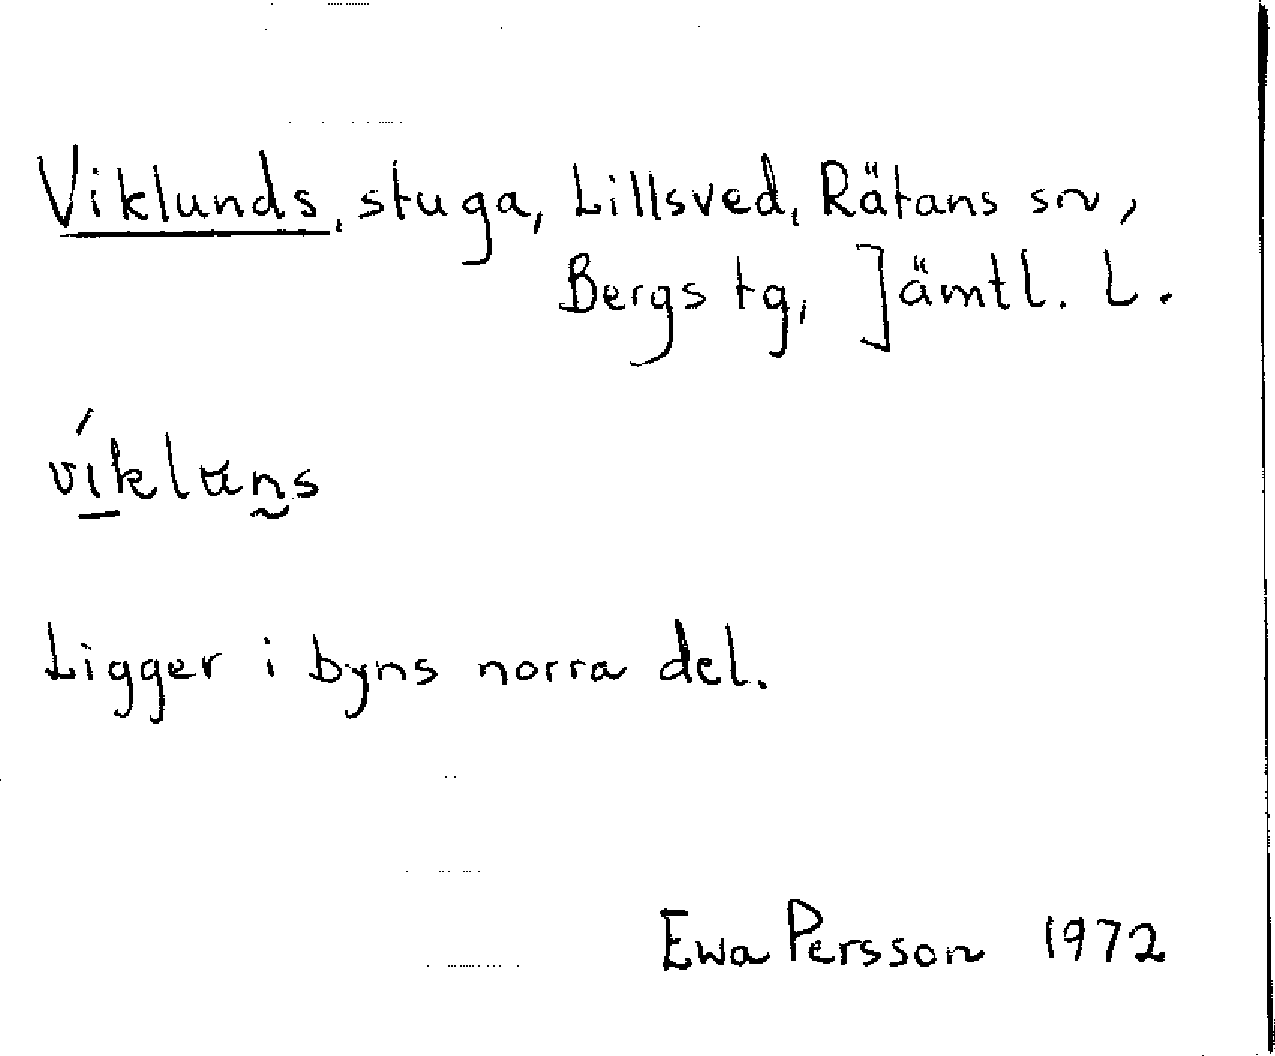 Viklunds, stuga, Lillsved, Rätans sn,
Bergs tg, Jämtl. L.
víklu̠n̰s
Ligger i byns norra del.
Ewa Persson 1972